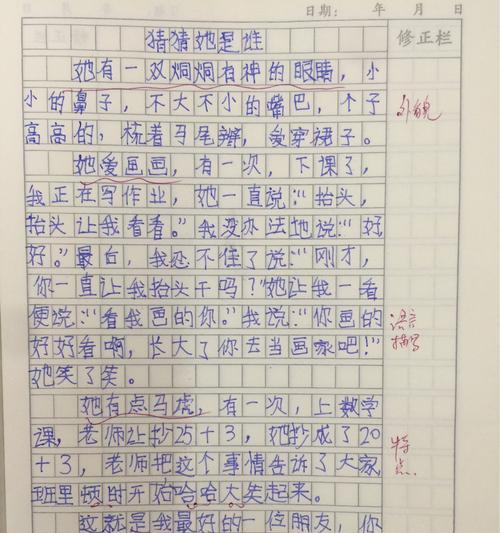 日期： 年 月 日
修正栏
猜猜她是谁
她有一双炯炯有神的眼睛，小
小的鼻子，不大不小的嘴巴，个子
高高的，梳着马尾辫，爱穿裙子。
外貌
她爱画画，有一次，下课了，
我正在写作业，她一直说：“抬头，
抬头让我看看。”我没办法地说：“好
好。”最后，我忍不住了说：“刚才，
你一直让我抬头干吗？”她让我一看
便说：“看我画的你。”我说：“你画的
好好看啊，长大了你去当画家吧！”
语言
描写
她笑了笑。
她有点马虎，有一次，上数学
课，老师让抄25+3，她抄成了20
+3，老师把这个事情告诉了大家
特
点
班里顿时开始哈哈大笑起来。
这就是我最好的一位朋友，你